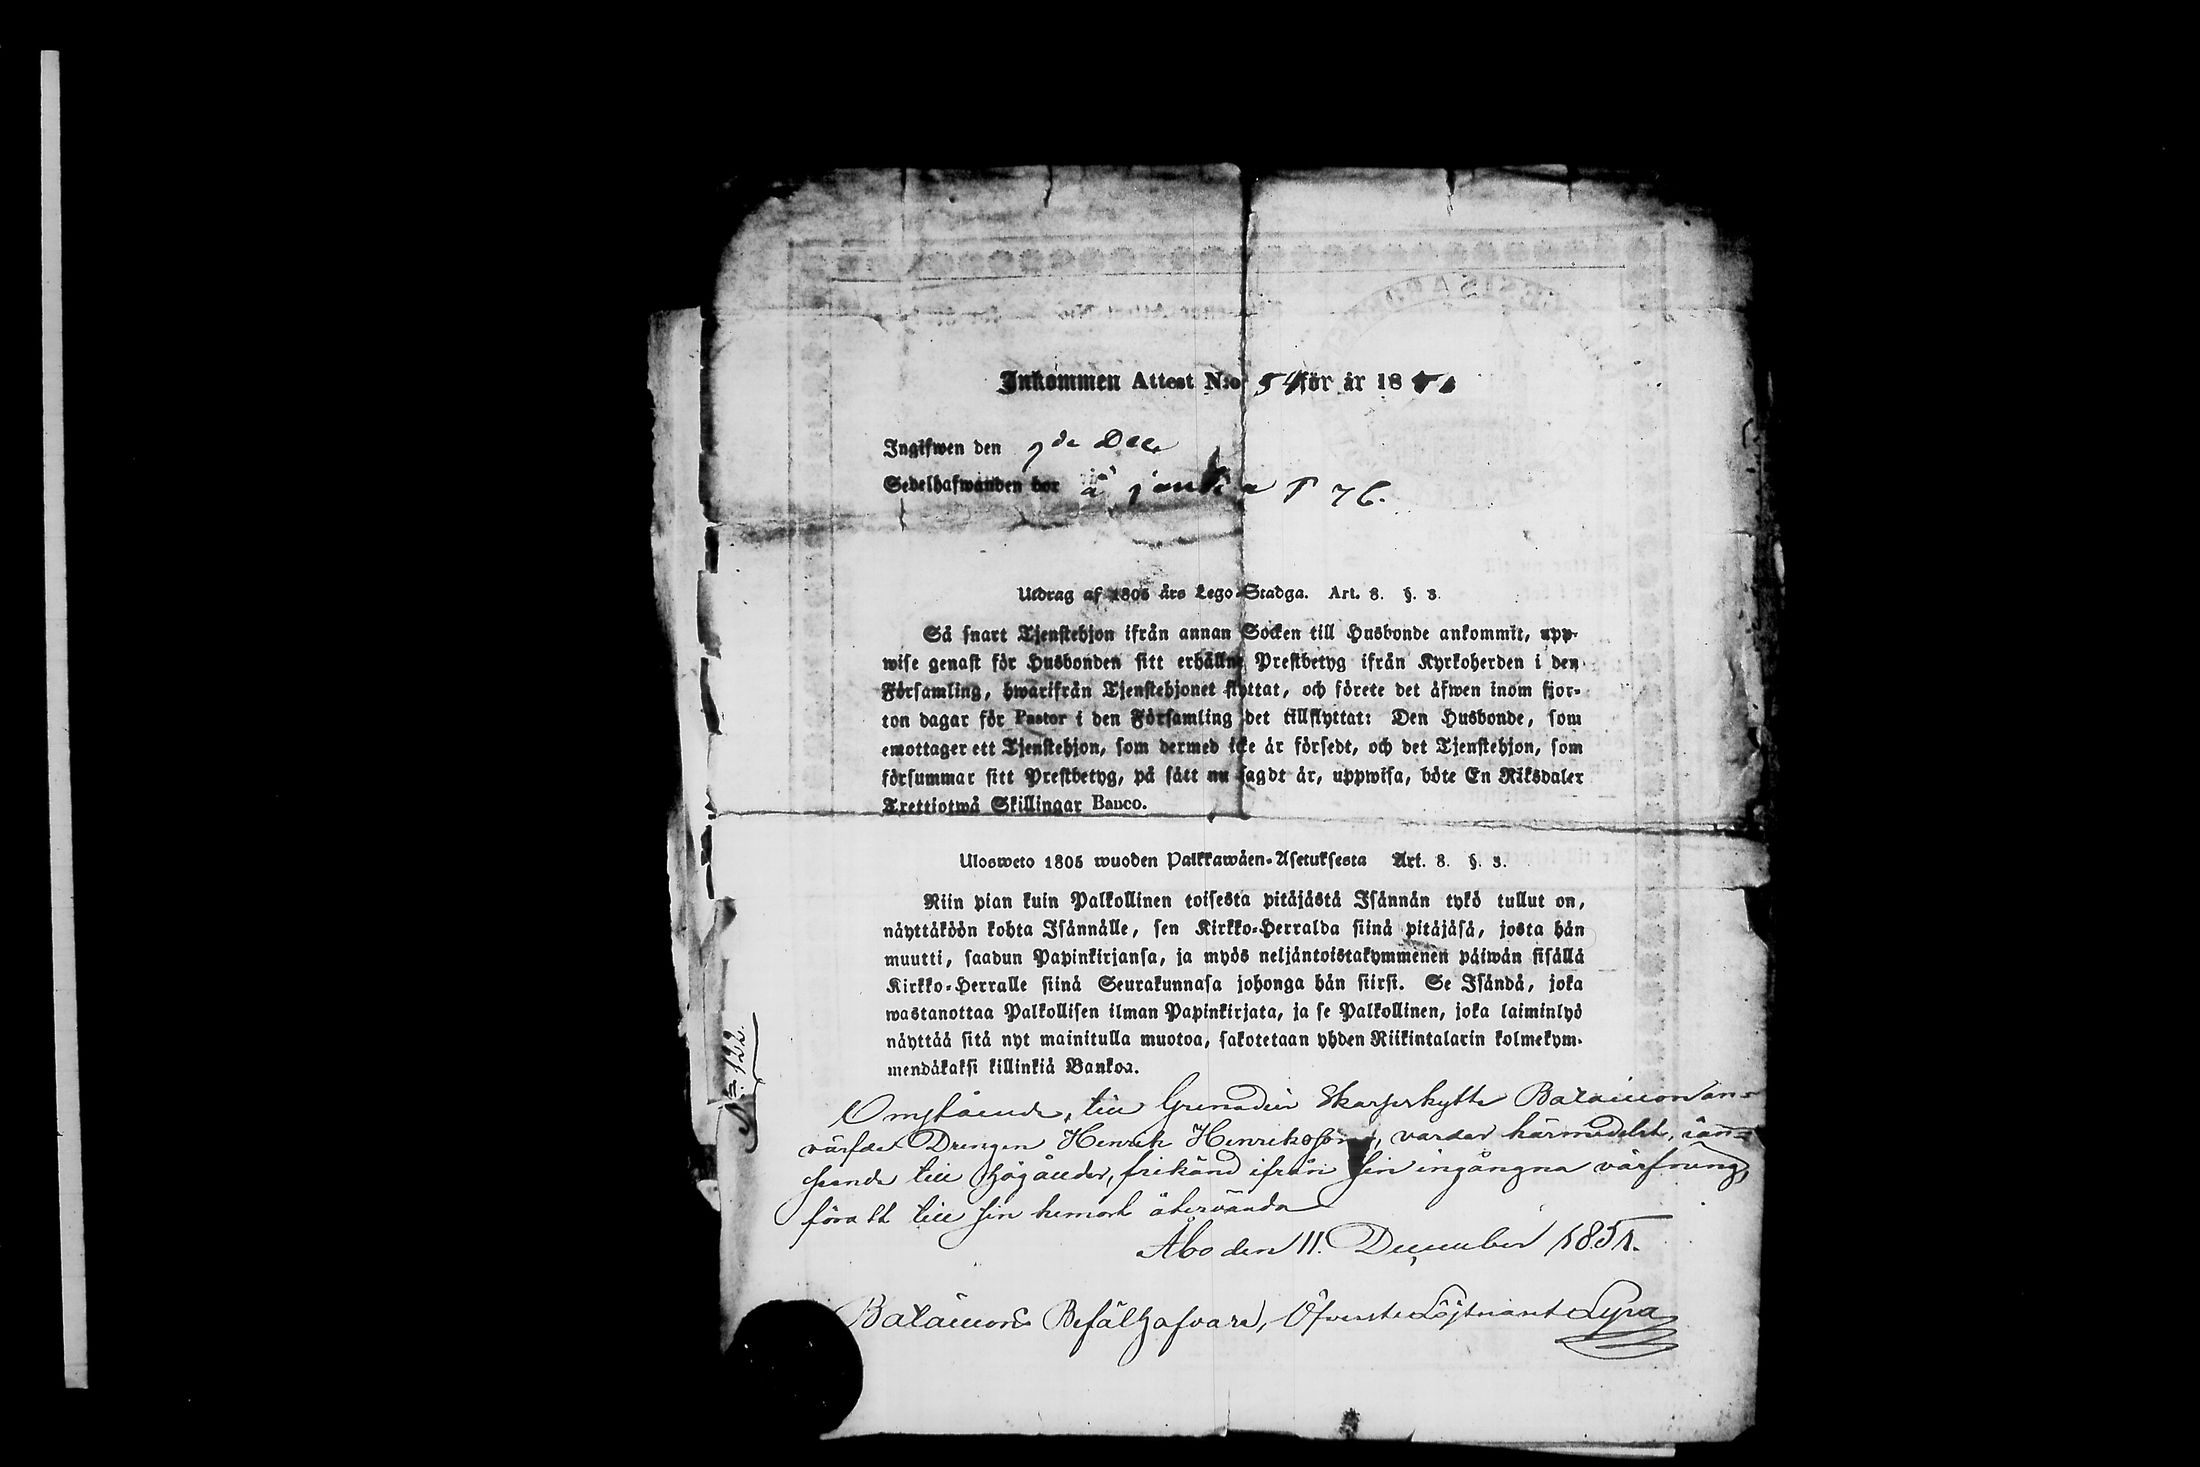 Inkommen Attest N:o 54 för år 1851
Ingifwen den 9de Dec
Sedelhafwanden bor å p 76.
Utdrag af 1805 års Lego-Stadga. Art. 8. §. 3.
Så snart Tjenstehjon ifrån annan Socken till Husbonde ankommit, upp-
wise genast för Husbonden sitt erhållne Prestbetyg ifrån Kyrkoherden i den
Församling, hwarifrån Tjenstehjonet flyttat, och förete det äfwen inom fjor-
ton dagar för Pastor i den Församling det tillflyttat: Den Husbonde, som
emottager ett Tjenstehjon, som dermed icke är försedt, och det Tjenstehjon, som
försummar sitt Prestbetyg, på sätt nu sagdt är, uppwisa, böte En Riksdaler
Trettiotwå Skillingar Banco.
Ulosweto 1805 wuoden Palkkawäen-Asetuksesta Art. 8. §. 3.
Niin pian kuin Palkollinen toisesta pitäjästä Isännän tykö tullut on,
näyttäköön kohta Isännälle, sen Kirkko-Herralda siinä pitäjäsä, josta hän
muutti, saadun Papinkirjansa, ja myös neljäntoistakymmenen päiwän sisällä
Kirkko-Herralle siinä Seurakunnasa johonga hän siirsi. Se Isändä, joka
wastanottaa Palkollisen ilman Papinkirjata, ja se Palkollinen, joka laiminlyö
näyttää sitä nyt mainitulla muotoa, sakotetaan yhden Riikintalarin kolmekym-
mendäkaksi killinkiä Bankoa.
N:o 122.
Omstående, till Grenadier Skarpskytte Bataillon an-
värfde Drengen Henrik Henriksson, varder härmedelst,
till frikänd ifrån sin ingångna värfning,
för att till sin hemort återvända
Åbo den 11. December 1851.
Bataillons Befälhafvare, Öfverste Löjtnant Lyra